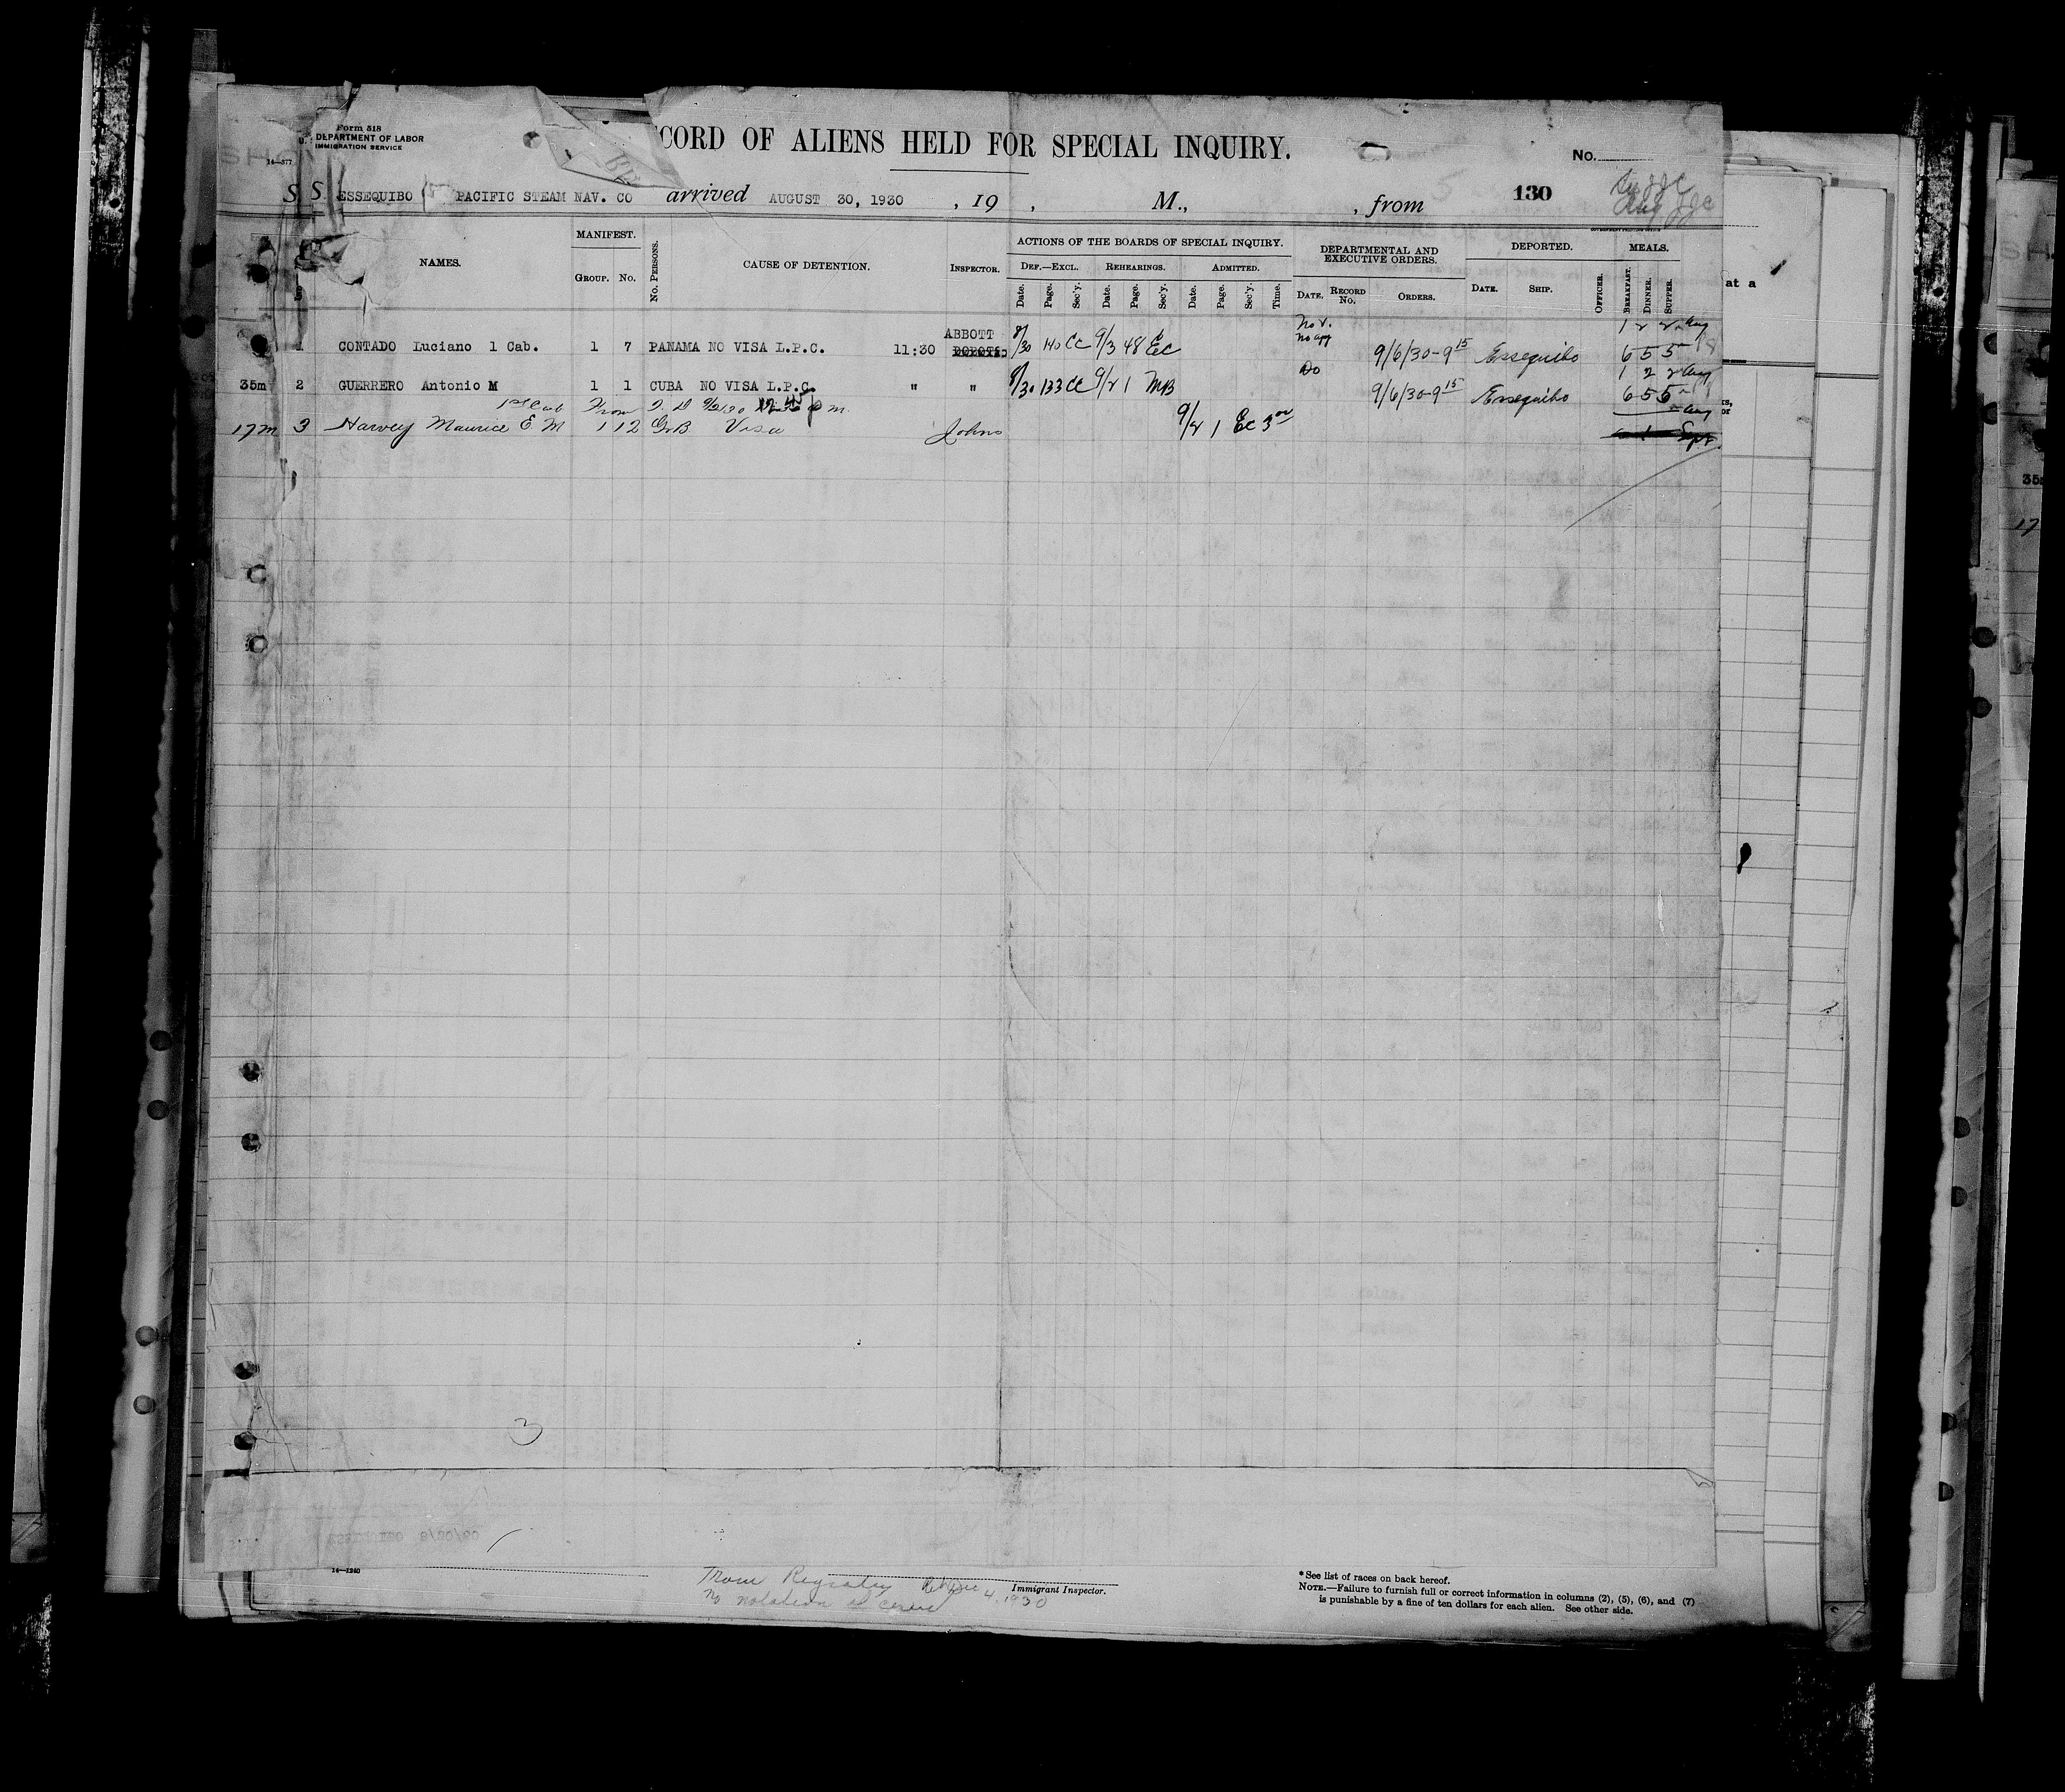 Form 518
U. S. DEPARTMENT OF LABOR
IMMIGRATION SERVICE
14—577
CORD OF ALIENS HELD FOR SPECIAL INQUIRY.
No.
S. S. ESSEQUIBO PACIFIC STEAM NAV. CO arrived AUGUST 30, 1930 , 19 , M., , from 130
NAMES. MANIFEST. GROUP. No. No. PERSONS. CAUSE OF DETENTION. INSPECTOR.
ACTIONS OF THE BOARDS OF SPECIAL INQUIRY. DEF.—EXCL. REHEARINGS. ADMITTED.
Date. Page. Sec'y. Date. Page. Sec'y. Date. Page. Sec'y. Time.
DEPARTMENTAL AND EXECUTIVE ORDERS. DATE. RECORD No. ORDERS.
DEPORTED. DATE. SHIP. OFFICER.
MEALS. BREAKFAST. DINNER. SUPPER.
at a
ABBOTT
1 CONTADO Luciano 1 Cab. 1 7 PANAMA NO VISA L.P.C. 11:30 8/30 140 CC 9/3 48 EC 9/6/30-9 15 Essequibo 6 5 5
1 2 2 Aug
35m 2 GUERRERO Antonio M 1 1 CUBA NO VISA L.P.C. " " 8/30 133 CC 9/2 1 MB Do 9/6/30-9 15 Essequibo 6 5 5
1st Cab From T. D 9/2/30 p m.
17m 3 Harvey Maurice E M 1 12 GrB Visa Johns 9/2 1 EC 3 00
3
14—1240
Immigrant Inspector.
4, 1930
No notation
* See list of races on back hereof.
NOTE.—Failure to furnish full or correct information in columns (2), (5), (6), and (7)
is punishable by a fine of ten dollars for each alien. See other side.